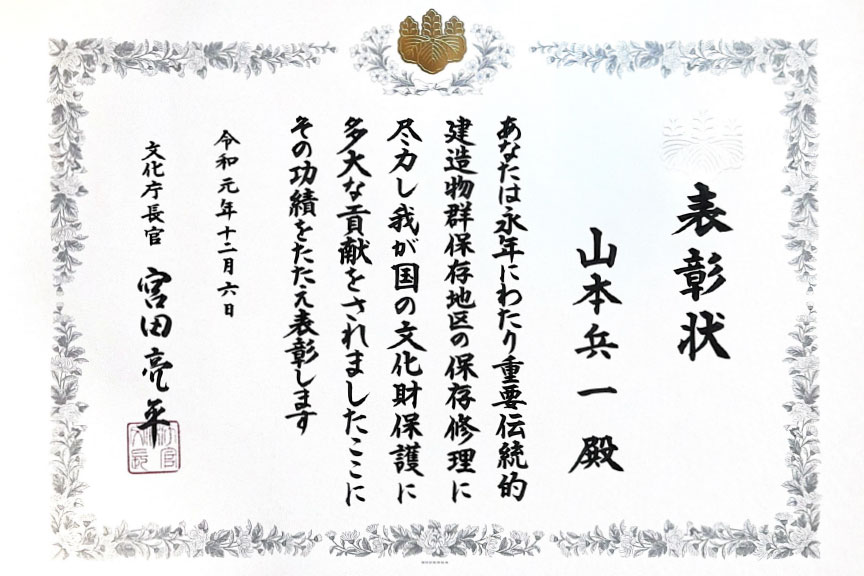 表彰状
山本兵一殿
あなたは永年にわたり重要伝統的
建造物群保存地区の保存修理に
尽力し我が国の文化財保護に
多大な貢献をされましたここに
その功績をたたえ表彰します
令和元年十二月六日
文化庁長官 宮田亮平